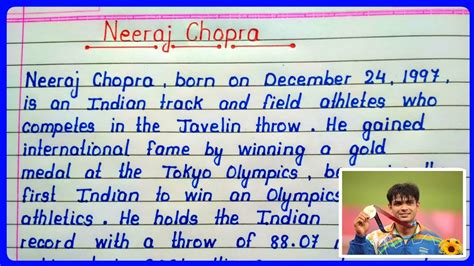 Neeraj Chopra
Neeraj Chopra, born on December 24, 1997,
is an Indian track and field athletes who
competes in the Javelin throw. He gained
international fame by winning a gold
medal at the Tokyo Olympics,
first Indian to win an Olympics
athletics. He holds the Indian
record with a throw of 88.07